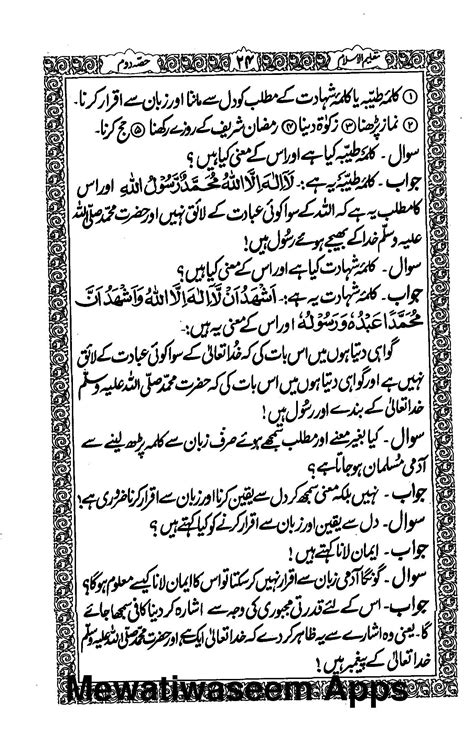 تعلیم الاسلام ۲۴ حصہ دوم
① کلمۂ طیبہ یا کلمۂ شہادت کے مطلب کو دل سے ماننا اور زبان سے اقرار کرنا۔
② نماز پڑھنا ③ زکوٰۃ دینا ④ رمضان شریف کے روزے رکھنا ⑤ حج کرنا۔
سوال۔ کلمۂ طیبہ کیا ہے اور اس کے معنی کیا ہیں؟
جواب۔ کلمۂ طیبہ یہ ہے:۔ لَآ اِلٰہَ اِلَّا اللہُ مُحَمَّدٌ رَّسُوْلُ اللہِ اور اس
کا مطلب یہ ہے کہ اللہ کے سوا کوئی عبادت کے لائق نہیں اور حضرت محمد صلی اللہ
علیہ وسلم خدا کے بھیجے ہوئے رسول ہیں!
سوال۔ کلمۂ شہادت کیا ہے اور اس کے معنی کیا ہیں؟
جواب۔ کلمۂ شہادت یہ ہے:۔ اَشْھَدُ اَنْ لَّآ اِلٰہَ اِلَّا اللہُ وَاَشْھَدُ اَنَّ
مُحَمَّدًا عَبْدُہٗ وَرَسُوْلُہٗ اور اس کے معنی یہ ہیں:۔
گواہی دیتا ہوں میں اس بات کی کہ خدا تعالیٰ کے سوا کوئی عبادت کے لائق
نہیں ہے اور گواہی دیتا ہوں میں اس بات کی کہ حضرت محمد صلی اللہ علیہ وسلم
خدا تعالیٰ کے بندے اور رسول ہیں!
سوال۔ کیا بغیر معنے اور مطلب سمجھے ہوئے صرف زبان سے کلمہ پڑھ لینے سے
آدمی مسلمان ہو جاتا ہے؟
جواب۔ نہیں بلکہ معنی سمجھ کر دل سے یقین کرنا اور زبان سے اقرار کرنا ضروری ہے!
سوال۔ دل سے یقین اور زبان سے اقرار کرنے کو کیا کہتے ہیں؟
جواب۔ ایمان لانا کہتے ہیں!
سوال۔ گونگا آدمی زبان سے اقرار نہیں کر سکتا تو اس کا ایمان لانا کیسے معلوم ہوگا؟
جواب۔ اس کے لئے قدرتی مجبوری کی وجہ سے اشارہ کر دینا کافی سمجھا جائے
گا۔ یعنی وہ اشارے سے یہ ظاہر کر دے کہ خدا تعالیٰ ایک ہے، اور حضرت محمد صلی اللہ علیہ وسلم
خدا تعالیٰ کے پیغمبر ہیں!
Mewatiwaseem Apps